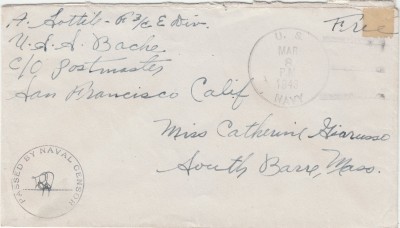 A. Sottile - F 3/c E Div.
Free
U.S.S. Bache
C/O Postmaster
San Francisco Calif
U.S.
MAR
8
PM
NAVY
Miss Catherine Giarusso
South Barre, Mass.
PASSED BY NAVAL CENSOR